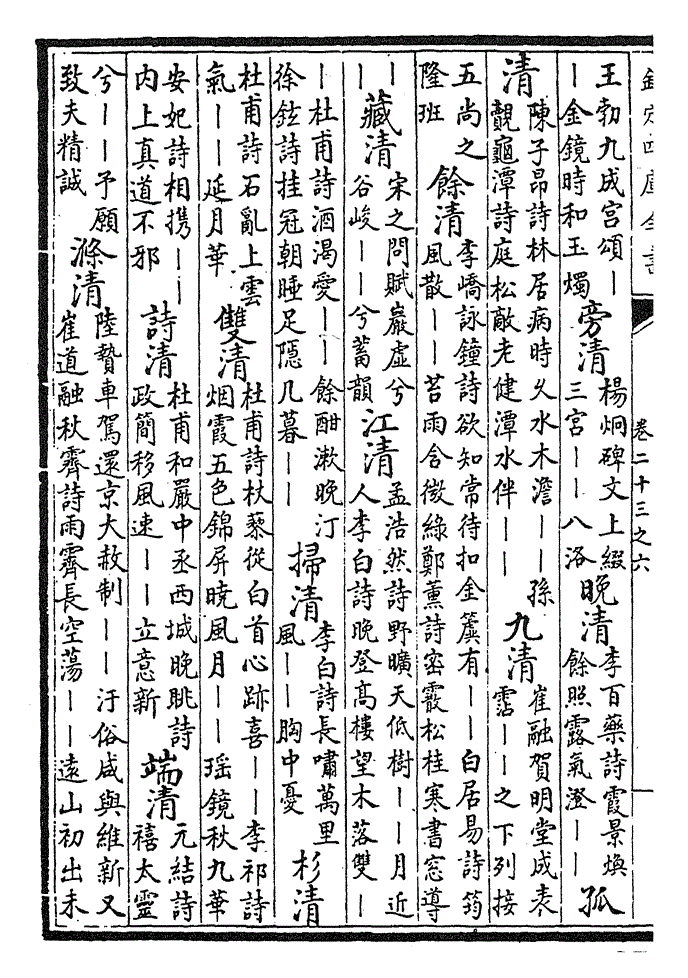 欽定四庫全書
卷二十三之六
王勃九成宮頌｜｜金鏡時和玉燭 旁清 楊炯碑文上綴三宮｜｜八洛 晚清 李百藥詩霞景煥餘照露氣澄｜｜ 孤
清 陳子昂詩林居病時久水木澹｜｜孫覿龜潭詩庭松敵老健潭水伴｜｜ 九清 崔融賀明堂成表霑｜｜之下列接
五尚之隆班 餘清 李嶠詠鐘詩欲知常待扣金簴有｜｜白居易詩筠風散｜｜苔雨含微綠鄭薰詩密霰松桂寒書窓導
｜｜ 藏清 宋之問賦巖虛兮谷峻｜｜兮蓄韻 江清 孟浩然詩野曠天低樹｜｜月近人李白詩晚登高樓望木落雙｜
｜杜甫詩酒渴愛｜｜餘酣漱晚汀徐鉉詩挂冠朝睡足隱几暮｜｜ 掃清 李白詩長嘯萬里風｜｜胸中憂 杉清
杜甫詩石亂上雲氣｜｜延月華 雙清 杜甫詩杖藜從白首心跡喜｜｜李祁詩烟霞五色錦屏曉風月｜｜瑶鏡秋九華
安妃詩相携｜｜內上真道不邪 詩清 杜甫和嚴中丞西城晚眺詩政簡移風速｜｜立意新 端清 元結詩禧太靈
兮｜｜予願致夫精誠 滌清 陸贄車駕還京大赦制｜｜汙俗咸與維新又崔道融秋霽詩雨霽長空蕩｜｜遠山初出未